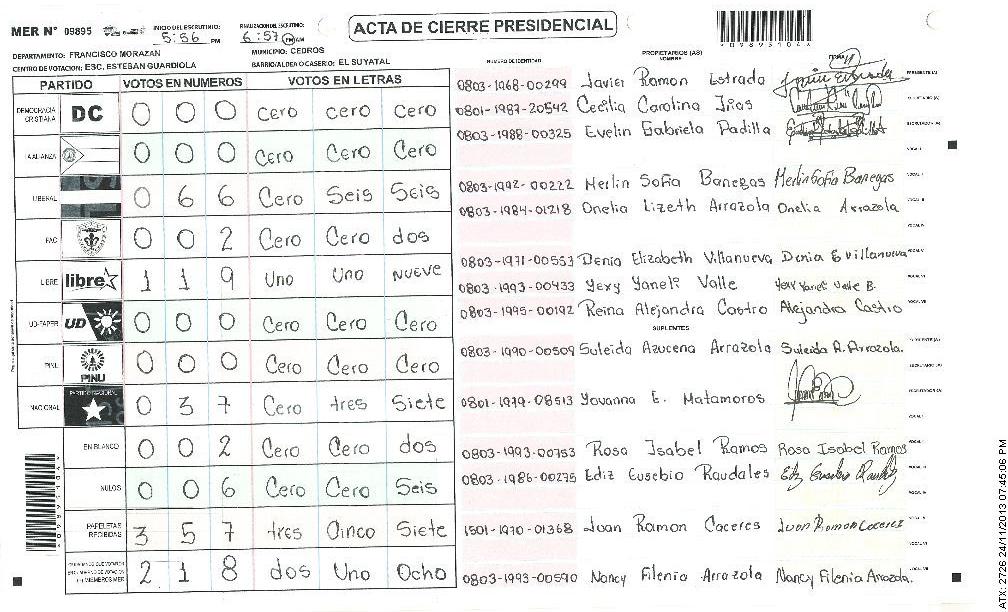 MER N° 09895 INICIO DEL ESCRUTINIO: 5:56 PM FINALIZACION DEL ESCRUTINIO: 6:57 PM AM ACTA DE CIERRE PRESIDENCIAL
DEPARTAMENTO: FRANCISCO MORAZAN MUNICIPIO: CEDROS
CENTRO DE VOTACION: ESC. ESTEBAN GUARDIOLA BARRIO/ALDEA O CASERIO: EL SUYATAL
NUMERO DE IDENTIDAD PROPIETARIOS (AS) NOMBRE FIRMA
PARTIDO VOTOS EN NUMEROS VOTOS EN LETRAS
DEMOCRACIA CRISTIANA DC 0 0 0 Cero Cero Cero
LA ALIANZA 0 0 0 Cero Cero Cero
LIBERAL 0 6 6 Cero Seis Seis
PAC 0 0 2 Cero Cero dos
LIBRE libre 1 1 9 Uno Uno Nueve
UD-FAPER UD 0 0 0 Cero Cero Cero
PINU PINU 0 0 0 Cero Cero Cero
NACIONAL PARTIDO NACIONAL 0 3 7 Cero tres Siete
EN BLANCO 0 0 2 Cero Cero dos
NULOS 0 0 6 Cero Cero Seis
PAPELETAS RECIBIDAS 3 5 7 tres Cinco Siete
2 1 8 dos Uno Ocho
0803-1968-00299 Javier Ramon Estrada PRESIDENTE (A)
0801-1987-20542 Cecilia Carolina SECRETARIO (A)
0803-1988-00325 Evelin Gabriela Padilla ESCRUTADOR (A)
VOCAL I
0803-1992-00222 Merlin Sofia Banegas Merlin Sofia Banegas
0803-1984-01218 Onelia Lizeth Arrazola Onelia Arrazola
0803-1971-00553 Denia Elizabeth Villanueva Denia E Villanueva
0803-1993-00433 Yexy Yaneli Valle
0803-1995-00192 Reina Alejandra Castro Alejandra Castro
SUPLENTES
0803-1990-00509 Suleida Azucena Arrazola Suleida A. Arrazola.
0801-1979-08513 Yovanna E. Matamoros
0803-1993-00753 Rosa Isabel Ramos Rosa Isabel Ramos
0803-1986-00275 Ediz Eusebio Raudales
1501-1970-01368 Juan Ramon Caceres Juan Ramon Caceres
0803-1993-00590 Nancy Filenia Arrazola Nancy Filenia Arrazola.
ATX: 2726 24/11/2013 07:45:06 PM